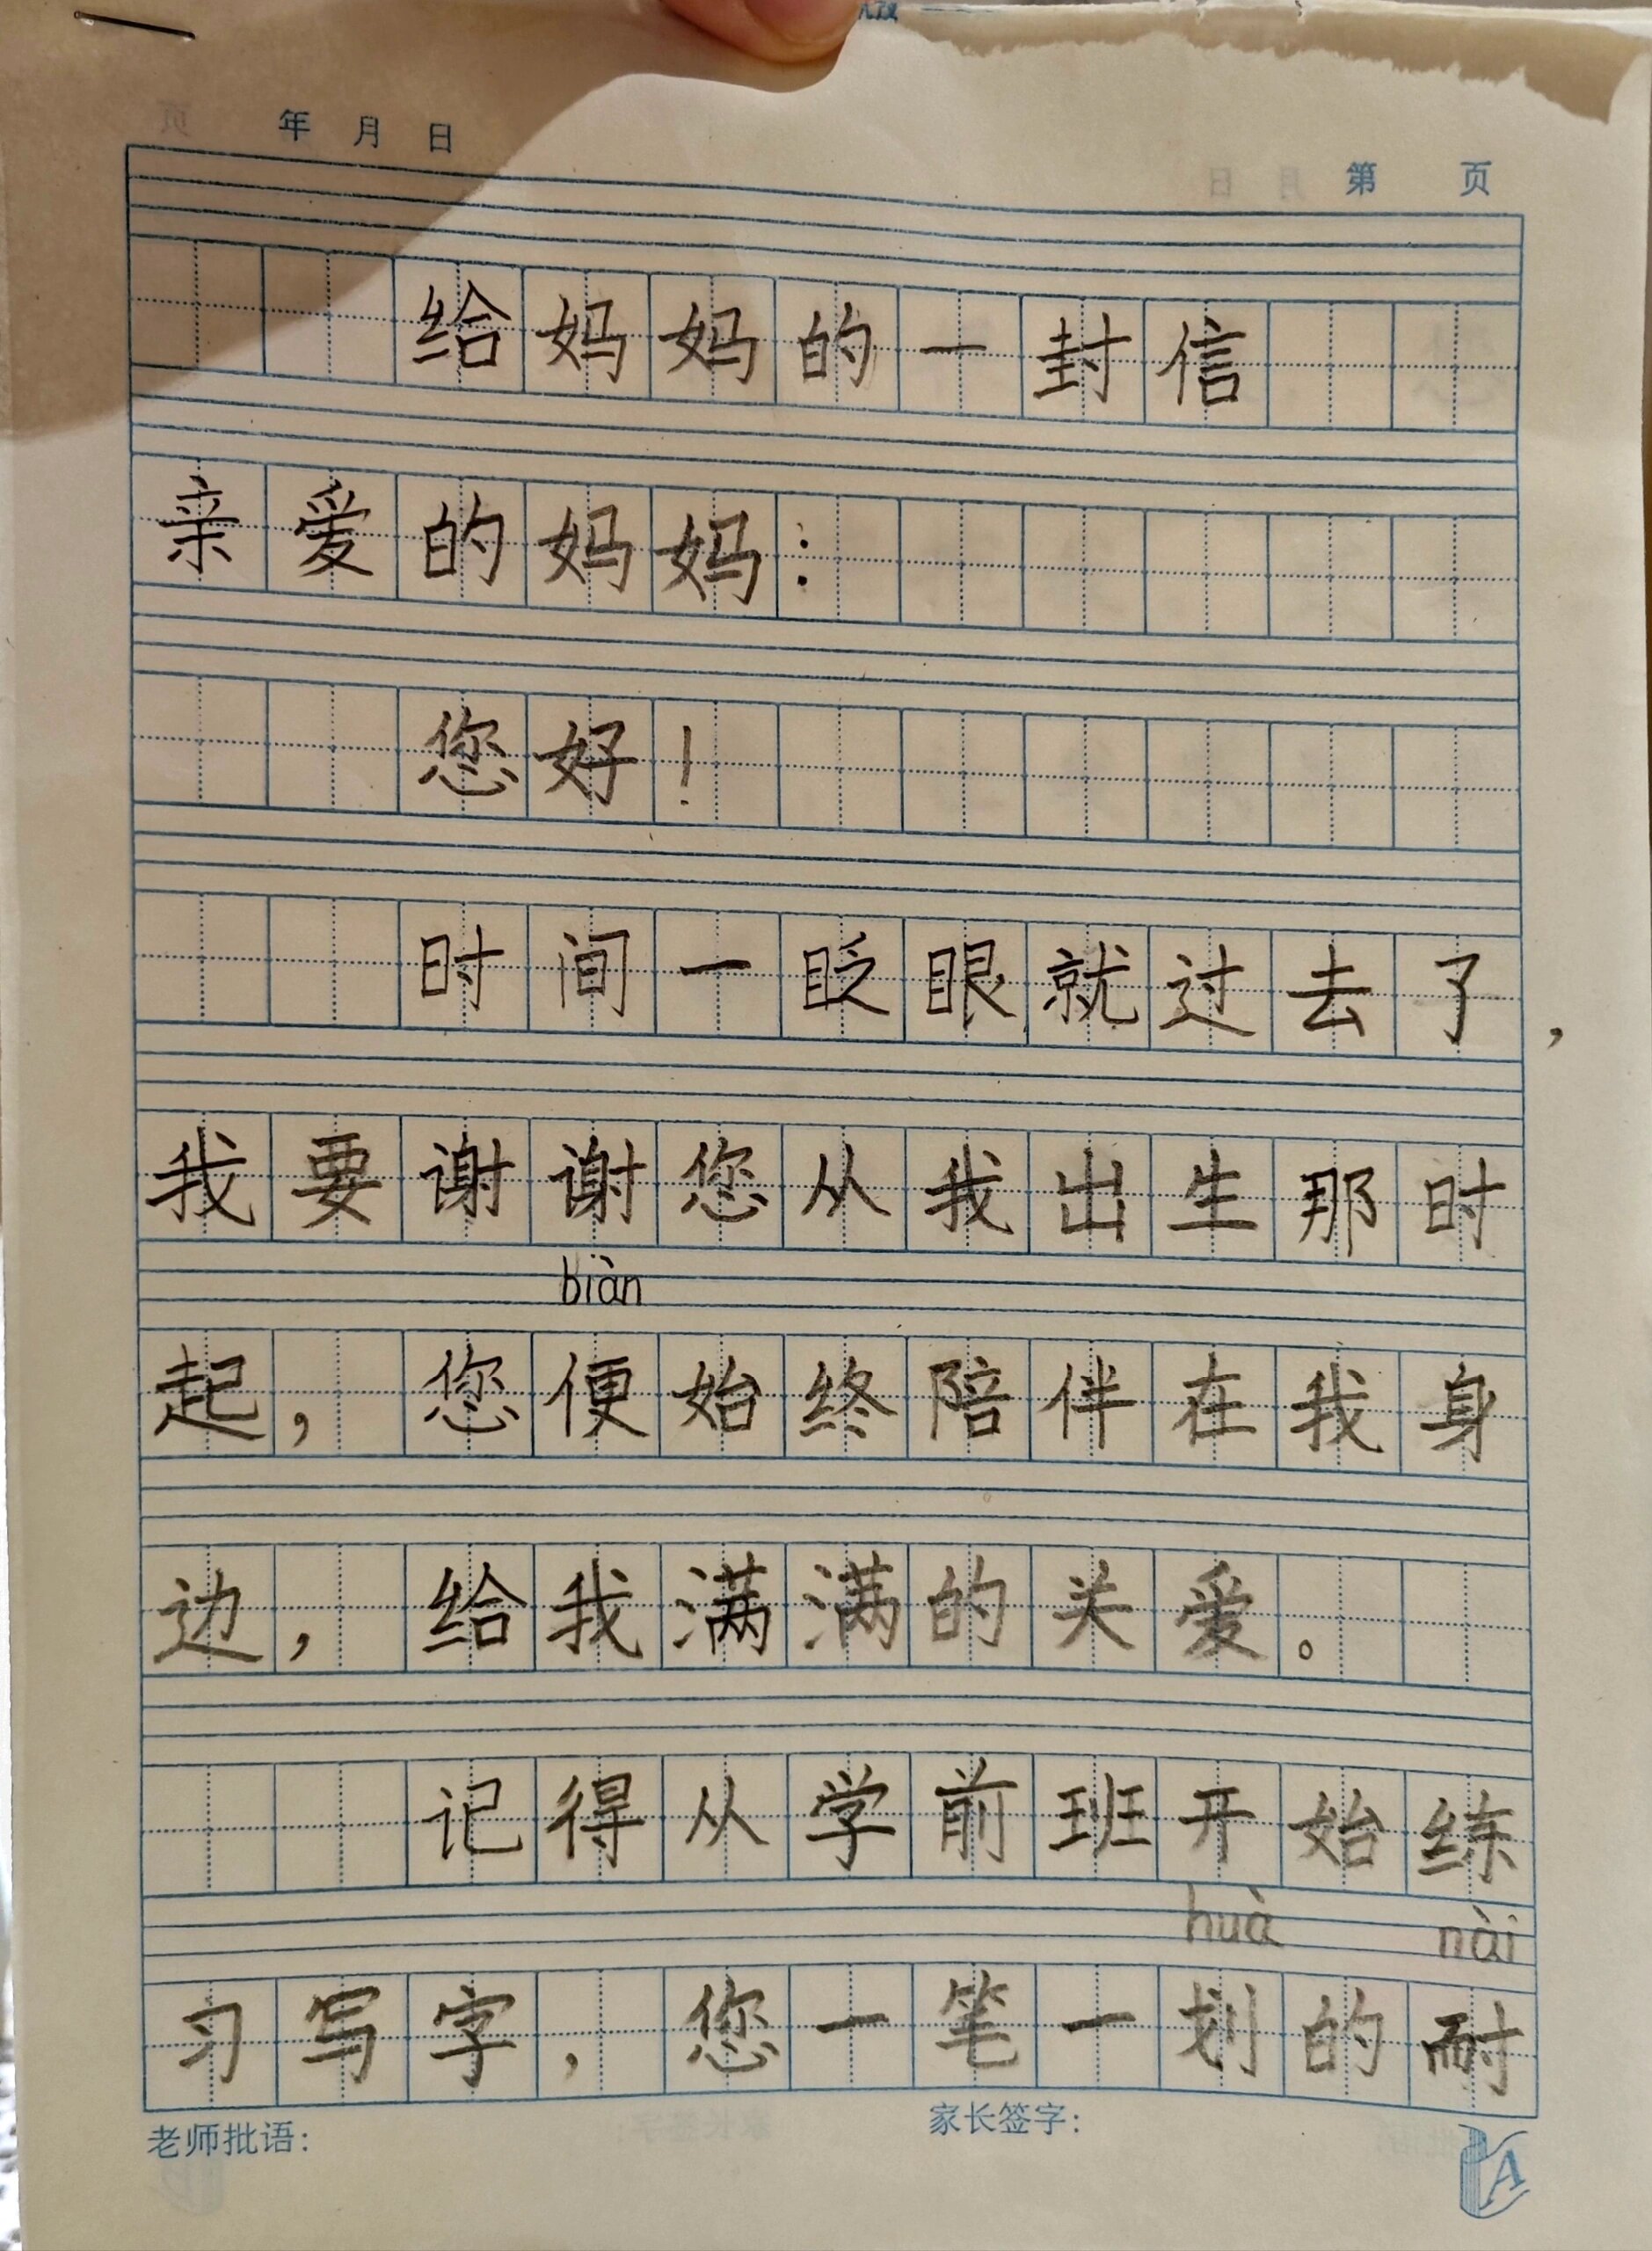 年 月 日
第 页
给妈妈的一封信
亲爱的妈妈：
您好！
时间一眨眼就过去了，
我要谢谢您从我出生那时
biàn
起，您便始终陪伴在我身
边，给我满满的关爱。
记得从学前班开始练
huà nài
习写字，您一笔一划的耐
老师批语： 家长签字：
A